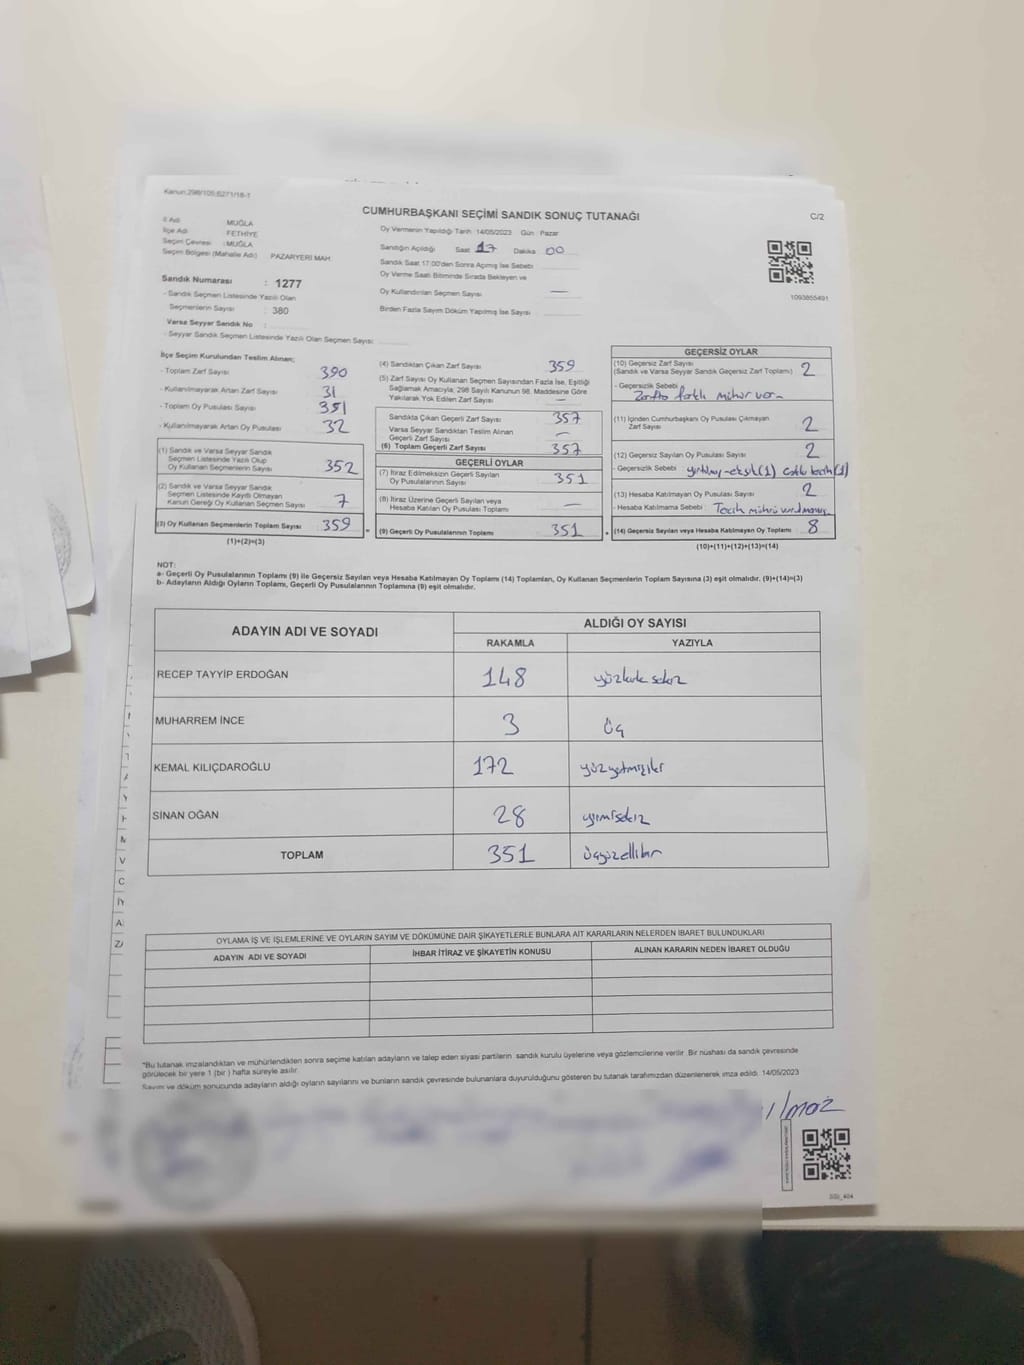 Kanun:298/105;6271/18-1
CUMHURBAŞKANI SEÇİMİ SANDIK SONUÇ TUTANAĞI
C/2
İl Adı MUĞLA
İlçe Adı FETHİYE
Seçim Çevresi : MUĞLA
Seçim Bölgesi (Mahalle Adı) PAZARYERİ MAH.
Sandık Numarası : 1277
- Sandık Seçmen Listesinde Yazılı Olan
Seçmenlerin Sayısı : 380
Varsa Seyyar Sandık No :
- Seyyar Sandık Seçmen Listesinde Yazılı Olan Seçmen Sayısı:
Oy Vermenin Yapıldığı Tarih :14/05/2023 Gün : Pazar
Sandığın Açıldığı Saat 17 Dakika 00
Sandık Saat 17:00'den Sonra Açılmış İse Sebebi
Oy Verme Saati Bitiminde Sırada Bekleyen ve
Oy Kullandırılan Seçmen Sayısı —
Birden Fazla Sayım Döküm Yapılmış İse Sayısı
1093855491
İlçe Seçim Kurulundan Teslim Alınan;
- Toplam Zarf Sayısı 390
- Kullanılmayarak Artan Zarf Sayısı 31
- Toplam Oy Pusulası Sayısı 351
- Kullanılmayarak Artan Oy Pusulası 32
(1) Sandık ve Varsa Seyyar Sandık
Seçmen Listesinde Yazılı Olup
Oy Kullanan Seçmenlerin Sayısı 352
(2) Sandık ve Varsa Seyyar Sandık
Seçmen Listesinde Kayıtlı Olmayan
Kanun Gereği Oy Kullanan Seçmen Sayısı 7
(3) Oy Kullanan Seçmenlerin Toplam Sayısı 359 =
(1)+(2)=(3)
(4) Sandıktan Çıkan Zarf Sayısı 359
(5) Zarf Sayısı Oy Kullanan Seçmen Sayısından Fazla İse, Eşitliği
Sağlamak Amacıyla, 298 Sayılı Kanunun 98. Maddesine Göre
Yakılarak Yok Edilen Zarf Sayısı —
Sandıkta Çıkan Geçerli Zarf Sayısı 357
Varsa Seyyar Sandıktan Teslim Alınan
Geçerli Zarf Sayısı —
(6) Toplam Geçerli Zarf Sayısı 357
GEÇERLİ OYLAR
(7) İtiraz Edilmeksizin Geçerli Sayılan
Oy Pusulalarının Sayısı 351
(8) İtiraz Üzerine Geçerli Sayılan veya
Hesaba Katılan Oy Pusulası Toplamı —
(9) Geçerli Oy Pusulalarının Toplamı 351 +
GEÇERSİZ OYLAR
(10) Geçersiz Zarf Sayısı
(Sandık ve Varsa Seyyar Sandık Geçersiz Zarf Toplamı) 2
- Geçersizlik Sebebi
Zarfta farklı mühür var.
(11) İçinden Cumhurbaşkanı Oy Pusulası Çıkmayan
Zarf Sayısı 2
(12) Geçersiz Sayılan Oy Pusulası Sayısı 2
- Geçersizlik Sebebi (1) (1)
(13) Hesaba Katılmayan Oy Pusulası Sayısı 2
- Hesaba Katılmama Sebebi: Tercih mührü
(14) Geçersiz Sayılan veya Hesaba Katılmayan Oy Toplamı 8
(10)+(11)+(12)+(13)=(14)
NOT:
a- Geçerli Oy Pusulalarının Toplamı (9) ile Geçersiz Sayılan veya Hesaba Katılmayan Oy Toplamı (14) Toplamları, Oy Kullanan Seçmenlerin Toplam Sayısına (3) eşit olmalıdır. (9)+(14)=(3)
b- Adayların Aldığı Oyların Toplamı, Geçerli Oy Pusulalarının Toplamına (9) eşit olmalıdır.
ADAYIN ADI VE SOYADI
ALDIĞI OY SAYISI
RAKAMLA YAZIYLA
RECEP TAYYİP ERDOĞAN 148 yüzkırk sekiz
MUHARREM İNCE 3 Üç
KEMAL KILIÇDAROĞLU 172 yüzyetmişiki
SİNAN OĞAN 28 yirmisekiz
TOPLAM 351 üçyüzellibir
OYLAMA İŞ VE İŞLEMLERİNE VE OYLARIN SAYIM VE DÖKÜMÜNE DAİR ŞİKAYETLERLE BUNLARA AİT KARARLARIN NELERDEN İBARET BULUNDUKLARI
ADAYIN ADI VE SOYADI İHBAR İTİRAZ VE ŞİKAYETİN KONUSU ALINAN KARARIN NEDEN İBARET OLDUĞU
*Bu tutanak imzalandıktan ve mühürlendikten sonra seçime katılan adayların ve talep eden siyasi partilerin sandık kurulu üyelerine veya gözlemcilerine verilir. Bir nüshası da sandık çevresinde
görülecek bir yere 1 (bir) hafta süreyle asılır.
Sayım ve döküm sonucunda adayların aldığı oyların sayılarını ve bunların sandık çevresinde bulunanlara duyurulduğunu gösteren bu tutanak tarafımızdan düzenlenerek imza edildi. 14/05/2023